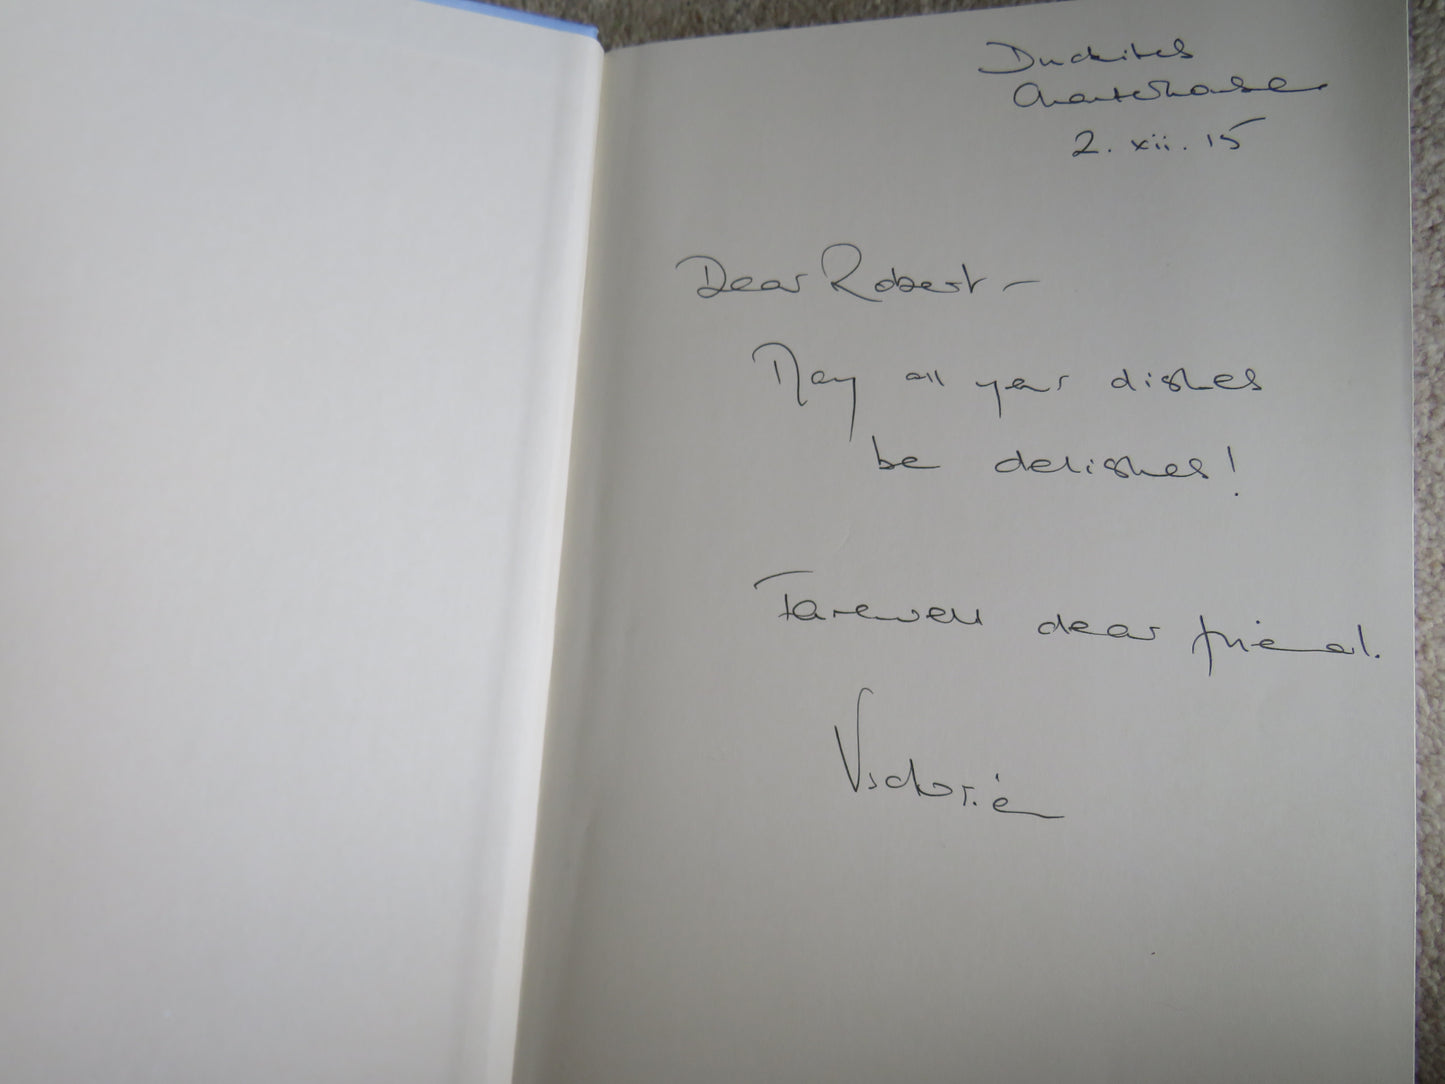 Duckites
Charterhouse
2. xii. 15
Dear Robert –
May all your dishes
be delishes!
Farewell dear friend.
Victoria